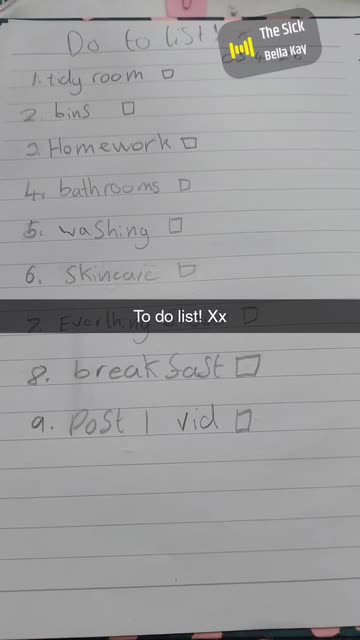 Do to list!
The Sick
Bella Kay
1. tidy room
2. bins
3. Homework
4. bathrooms
5. washing
6. Skincare
To do list! Xx
7.
8. breakfast
9. Post 1 vid